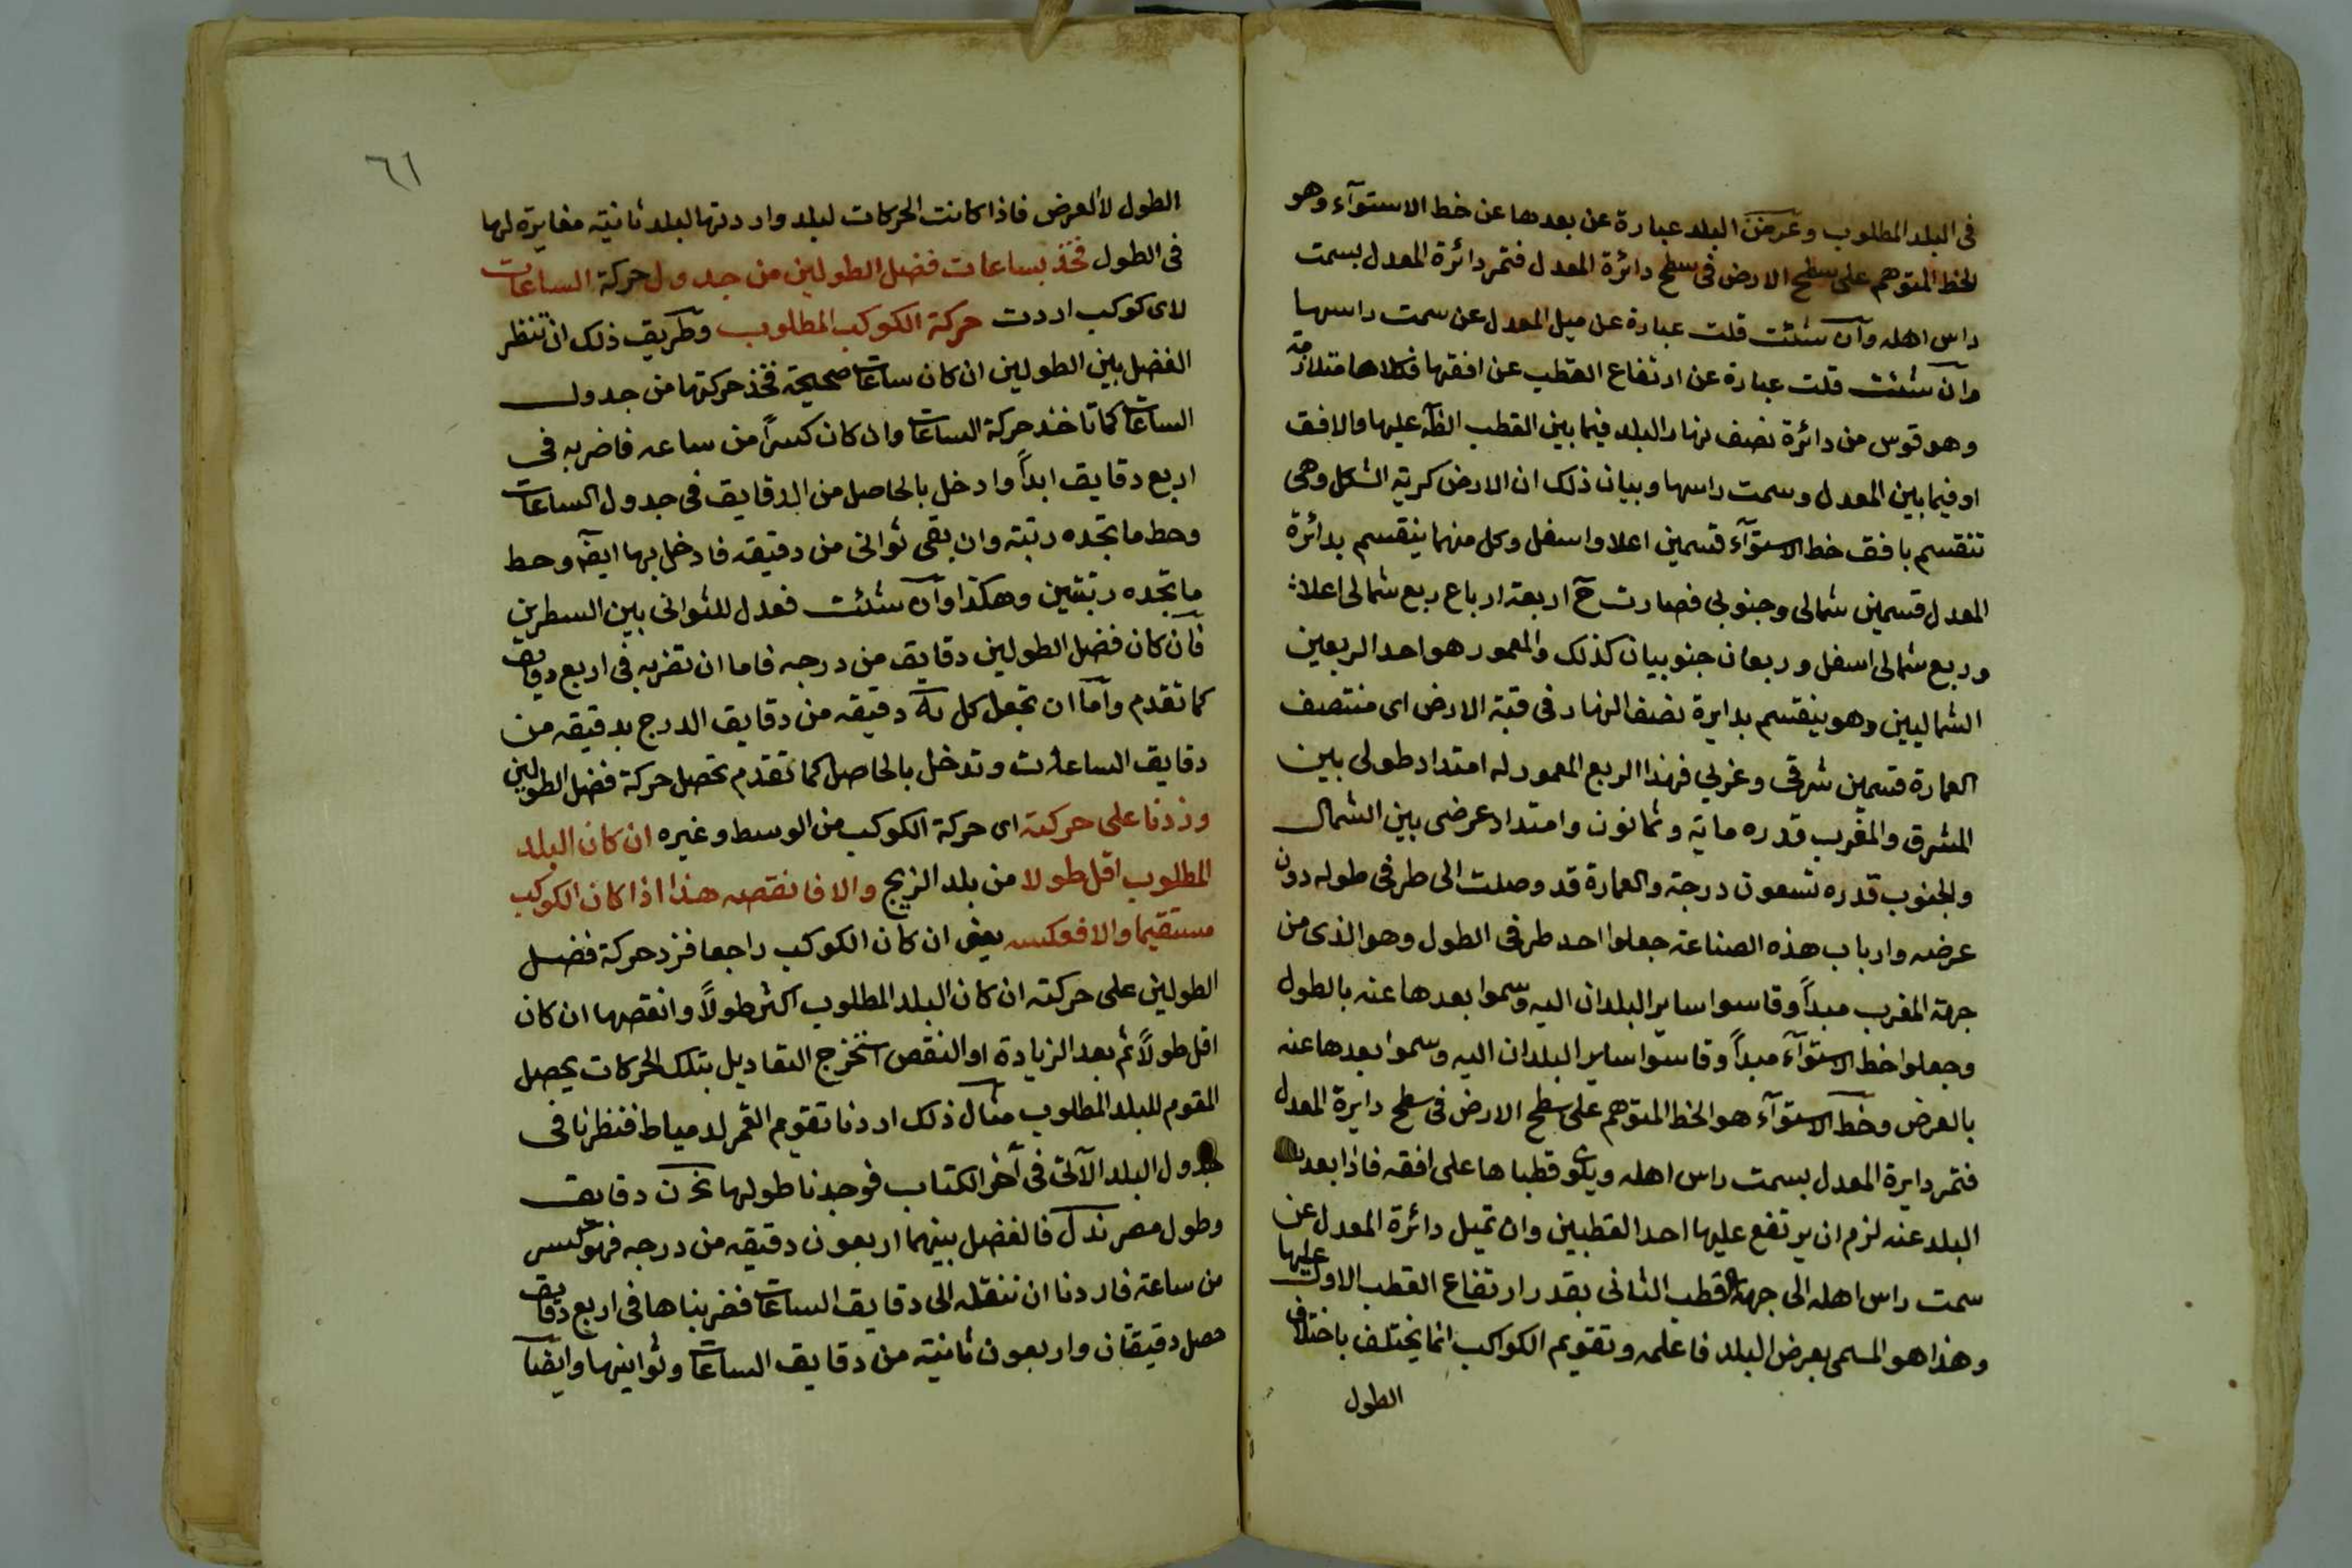 فى البلد المطلوب وعرض البلد عبارة عن بعدها عن خط الاستوآء وهو
الخط المتوهم على سطح الارض فى سطح دائرة المعدل فتمر دائرة المعدل بسمت
راس اهله وان شئت قلت عبارة عن ميل المعدل عن سمت راسها
وان شئت قلت عبارة عن ارتفاع القطب عن افقها فكلاها متلازمة
وهو قوس من دائرة نصف نهار البلد فيما بين القطب الظآ عليها والافق
او فيما بين المعدل وسمت راسها وبيان ذلك ان الارض كرية الشكل وهى
تنقسم بافق خط الاستوآء قسمين اعلا واسفل وكل منهما ينقسم بدائرة
المعدل قسمين شمالى وجنوبى فصارت ح اربعة ارباع ربع شمالى اعلا
وربع شمالى اسفل وربعان جنوبيان كذلك والمعمور هو احد الربعين
الشماليين وهو ينقسم بدايرة نصف النهار فى قبة الارض اى منتصف
العمارة قسمين شرقى وغربى فهذا الربع المعمور له امتداد طولى بين
المشرق والمغرب قدره ماية وثمانون وامتداد عرضى بين الشمال
والجنوب قدره تسعون درجة والعمارة قد وصلت الى طرفى طوله دون
عرضه وارباب هذه الصناعة جعلوا احد طرفى الطول وهو الذى من
جهة المغرب مبدأ وقاسوا ساير البلدان اليه وسموا بعدها عنه بالطول
وجعلوا خط الاستوآء مبدأ وقاسوا ساير البلدان اليه وسموا بعدها عنه
بالعرض وخط الاستوآء هو الخط المتوهم على سطح الارض فى سطح دايرة المعدل
فتمر دايرة المعدل بسمت راس اهله ويكون قطباها على افقه فاذا بعد
البلد عنه لزم ان يرتفع عليها احد القطبين وان تميل دائرة المعدل عن
سمت راس اهله الى جهة القطب الثانى بقدر ارتفاع القطب الاول عليها
وهذا هو المسمى بعرض البلد فاعلمه وتقويم الكواكب انما يختلف باختلاف
الطول
٦١
الطول لا العرض فاذا كانت الحركات لبلد واردتها لبلد ثانية مغايرة لها
فى الطول فخذ بساعات فضل الطولين من جدول حركة الساعات
لاى كوكب اردت حركة الكوكب المطلوب وطريق ذلك ان تنظر
الفضل بين الطولين ان كان ساعات صحيحة فخذ حركتها من جدول
الساعات كما تاخذ حركة الساعات وان كان كسراً من ساعه فاضربه فى
اربع دقايق ابداً وادخل بالحاصل من الدقايق فى جدول الساعات
وحط ما تجده رتبة وان بقى ثوانى من دقيقه فادخل بها ايضا وحط
ما تجده رتبتين وهكذا وان شئت فعدل للثوانى بين السطرين
فان كان فضل الطولين دقايق من درجه فاما ان تضربه فى اربع دقايق
كما تقدم واما ان تجعل كل يه دقيقه من دقايق الدرج بدقيقه من
دقايق الساعات وتدخل بالحاصل كما تقدم تحصل حركة فضل الطولين
وزدنا على حركته اى حركة الكوكب من الوسط وغيره ان كان البلد
المطلوب اقل طولا من بلد الزيج والا فانقصه هذا اذا كان الكوكب
مستقيما والا فعكسه يعنى ان كان الكوكب راجعا فزد حركة فضل
الطولين على حركته ان كان البلد المطلوب اكثر طولاً وانقصها ان كان
اقل طولاً ثم بعد الزيادة او النقص استخرج التعاديل بتلك الحركات يحصل
المقوم للبلد المطلوب مثال ذلك اردنا تقويم القمر لدمياط فنظرنا فى
جدول البلد الآتى فى آخر الكتاب فوجدنا طولها دقايق
وطول مصر فالفضل بينهما اربعون دقيقه من درجه فهو كسر
من ساعة فاردنا ان ننقله الى دقايق الساعات فضربناها فى اربع دقايق
حصل دقيقتان واربعون ثانية من دقايق الساعات وثوانيها وايضا